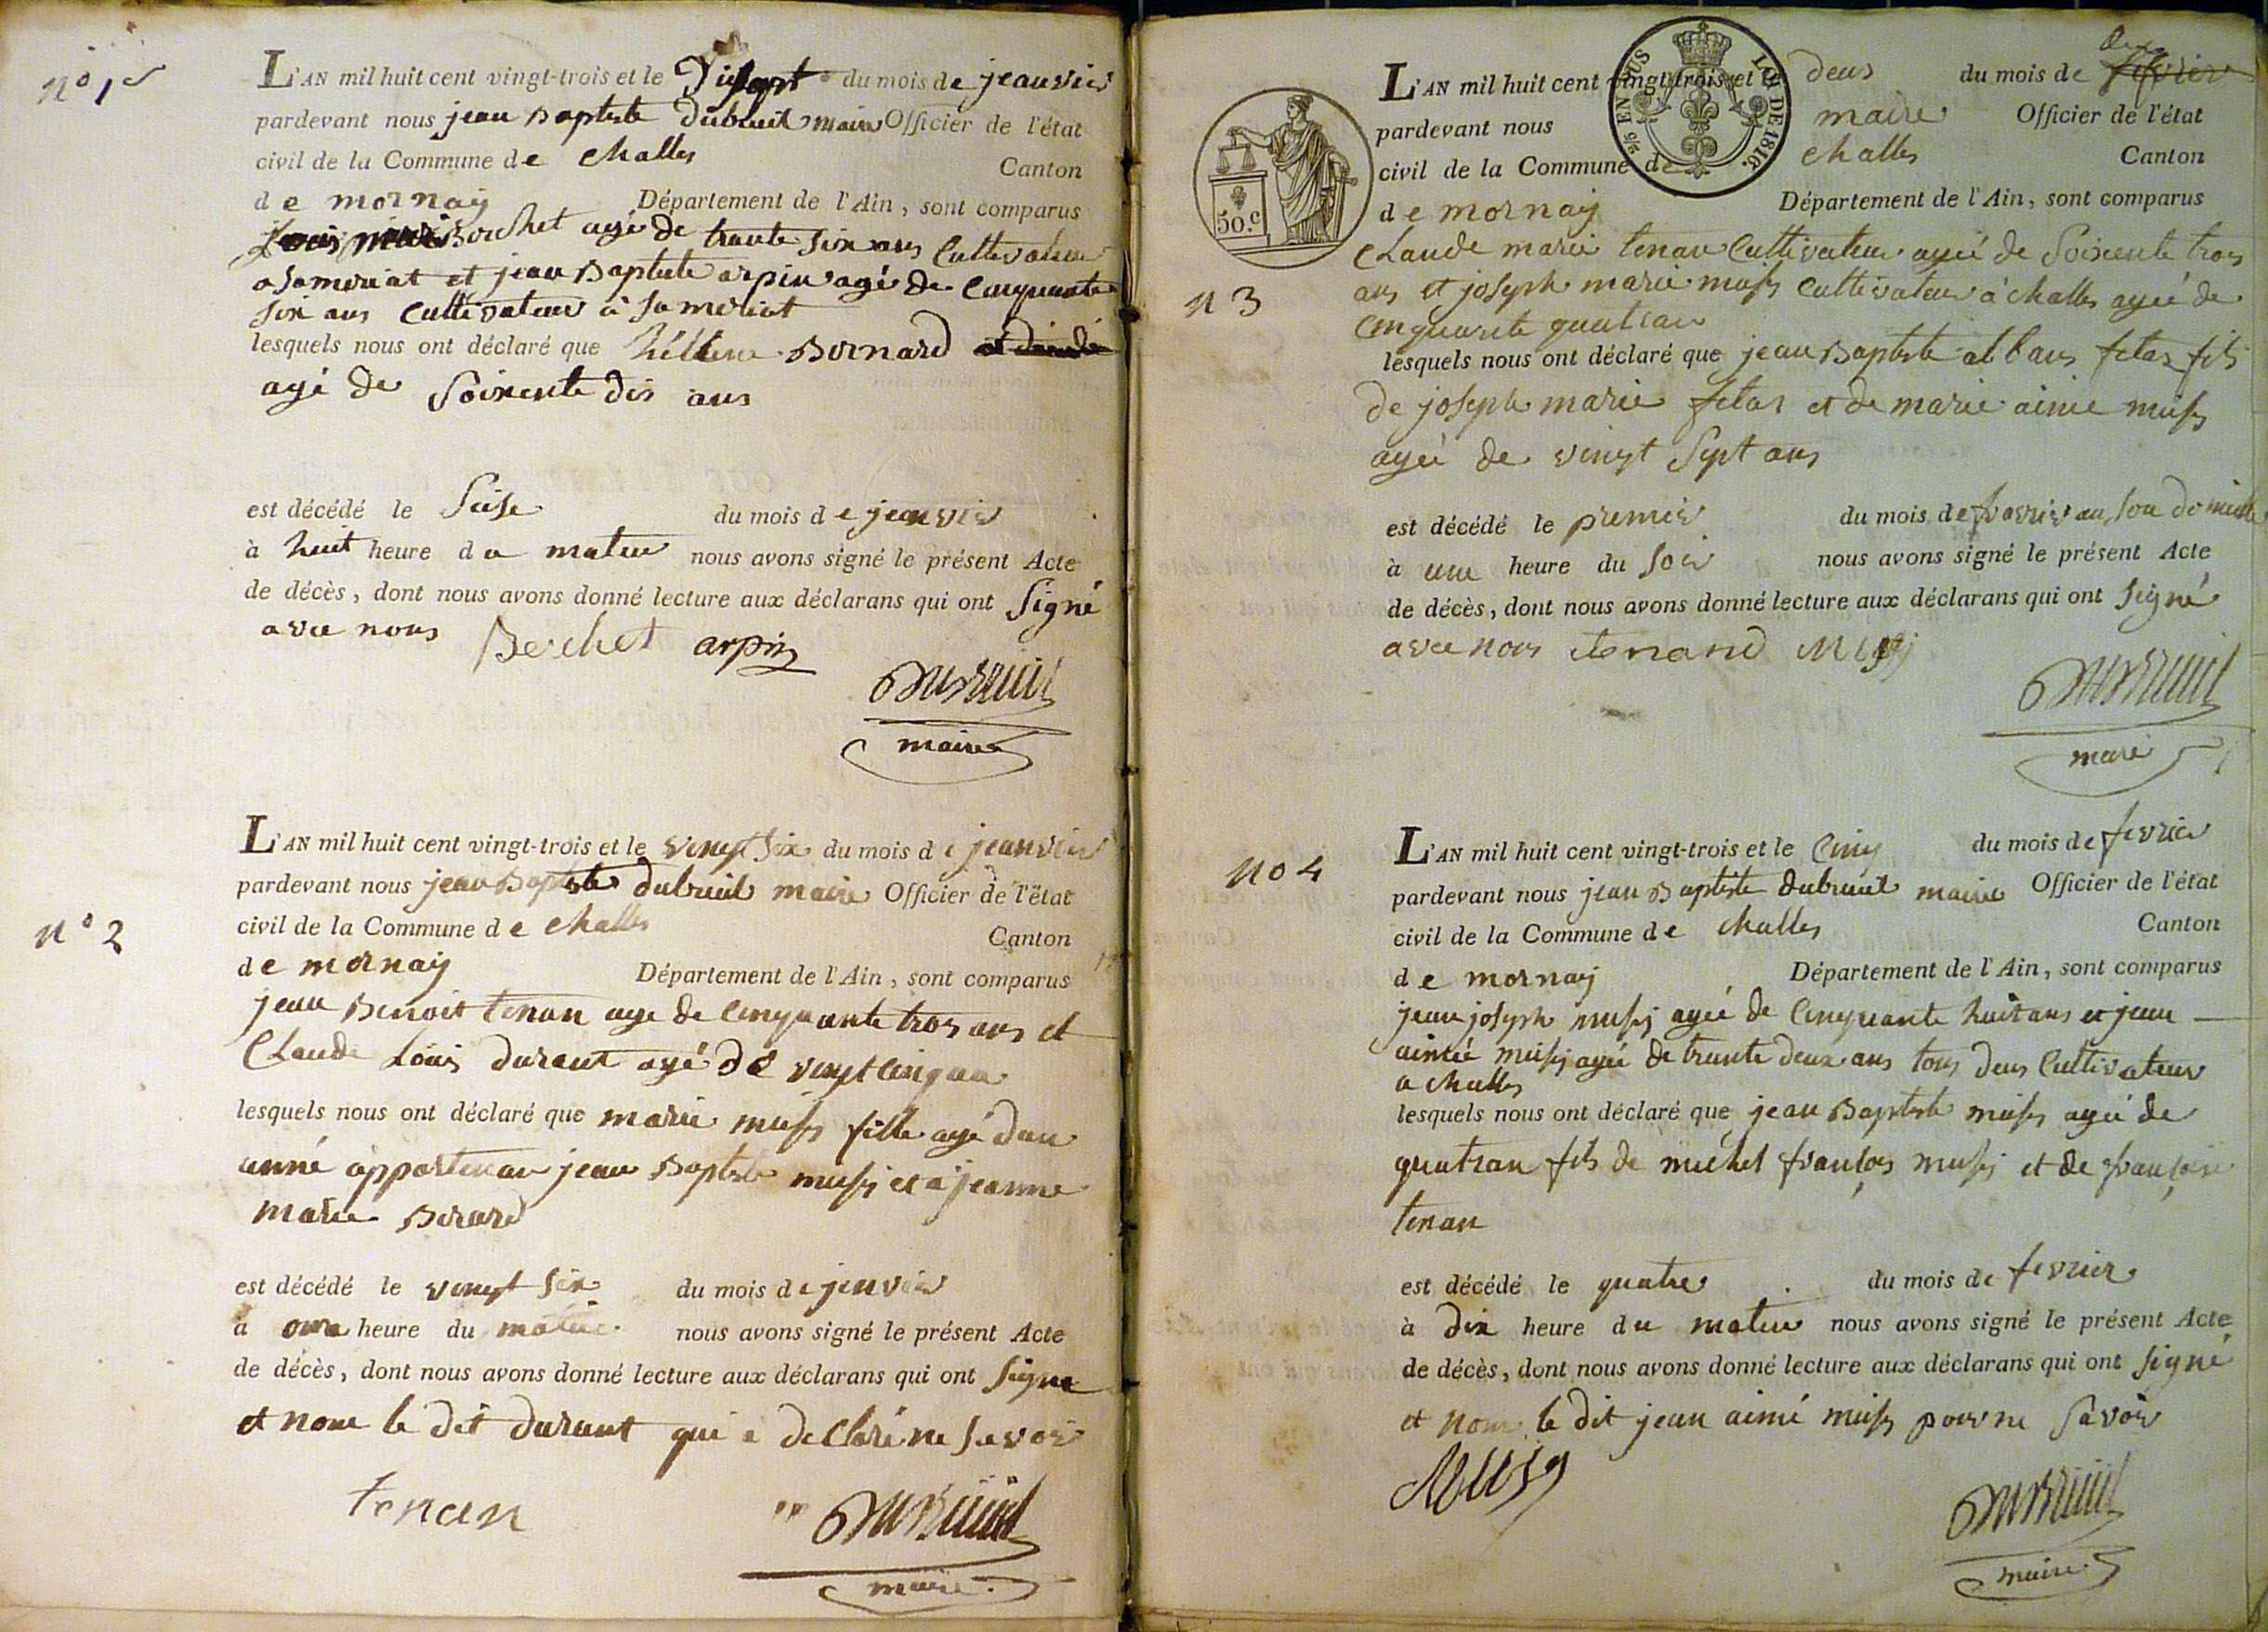 n° 1er
L'AN mil huit cent vingt-trois et le Disept du mois de jeanvier
pardevant nous jean Baptiste dubreuil maire Officier de l'état
civil de la Commune de Challes
Canton
de mornay Département de l'Ain, sont comparus
Bochet agé de trante six ans Cultivateur
a Sameriat et jean Baptiste arpin agé de Cinquante
six ans Cultivateur à Sameriat
lesquels nous ont déclaré que hélléne Bernard
agé de Soixente dis ans
est décédé le Seise du mois de jeanvier
à huit heure du matin nous avons signé le présent Acte
de décès, dont nous avons donné lecture aux déclarans qui ont Signé
avec nous Bochet arpin
Dubreuil
maire
n° 2
L'AN mil huit cent vingt-trois et le vingt six du mois de jeanvier
pardevant nous jean Baptiste dubreuil maire Officier de l'état
civil de la Commune de Challes
Canton
de mornay Département de l'Ain, sont comparus
jean Benoit tenan age de Cinquante trois ans et
Claude Louis durant agé de vingt cinq an
lesquels nous ont déclaré que marie mussy fille agé dun
anné appartenan jean Baptiste mussy et à jeanne
marie Berard
est décédé le vingt six du mois de jenvier
à onze heure du matin nous avons signé le présent Acte
de décès, dont nous avons donné lecture aux déclarans qui ont Signe
et non le dit durant qui a declaré ne savoir
tenan
Dubreuil
maire
2/5 EN SUS LOI DE 1816.
50.c
n 3
L'AN mil huit cent vingt-trois et le deux du mois de fevrier
pardevant nous maire Officier de l'état
civil de la Commune de Challes Canton
de mornay Département de l'Ain, sont comparus
Claude marie tenan Cultivateur agé de Soixente trois
ans et joseph marie mussy Cultivateur à Challes agé de
Cinquante quatr an
lesquels nous ont déclaré que jean Baptiste alban fetas fils
de joseph marie fetas et de marie aimé mussy
agé de vingt Sept ans
est décédé le premier du mois de fevrier au son domicile
à une heure du Soir nous avons signé le présent Acte
de décès, dont nous avons donné lecture aux déclarans qui ont Signé
avec nous tenand Mussy
Dubreuil
maire
no 4
L'AN mil huit cent vingt-trois et le Cinq du mois de fevrier
pardevant nous jean Baptiste dubreuil maire Officier de l'état
civil de la Commune de Challes Canton
de mornay Département de l'Ain, sont comparus
jean joseph mussy agé de Cinquante huit ans et jean
aimée mussy agé de trante deux ans tous deus Cultivateur
a Challes
lesquels nous ont déclaré que jean Baptiste mussy agé de
quatr an fils de michel françois mussy et de françoise
tenan
est décédé le quatre du mois de fevrier
à dix heure du matin nous avons signé le présent Acte
de décès, dont nous avons donné lecture aux déclarans qui ont Signé
et non le dit jean aimé mussy pour ne Savoir
Mussy
Dubreuil
maire